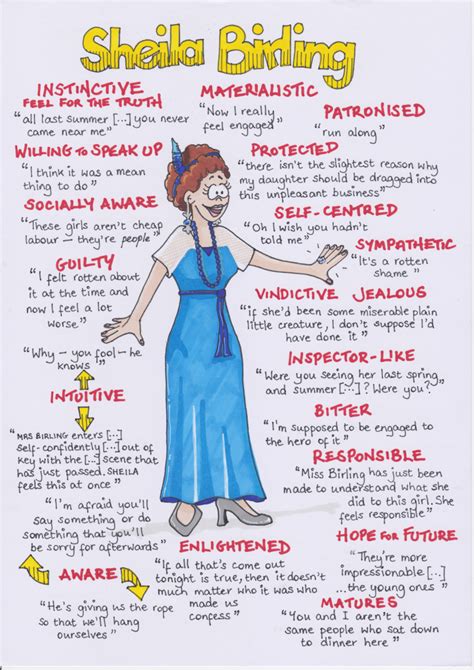 Sheila Birling
INSTINCTIVE
FEEL FOR THE TRUTH
"all last summer [...] you never
came near me"
MATERIALISTIC
"Now I really
feel engaged"
PATRONISED
"run along"
WILLING TO SPEAK UP
"I think it was a mean
thing to do"
PROTECTED
"there isn't the slightest reason why
my daughter should be dragged into
this unpleasant business"
SOCIALLY AWARE
"These girls aren't cheap
labour – they're people"
SELF-CENTRED
"Oh I wish you hadn't
told me"
SYMPATHETIC
"It's a rotten
shame"
GUILTY
"I felt rotten about
it at the time and
now I feel a lot
worse"
VINDICTIVE JEALOUS
"if she'd been some miserable plain
little creature, I don't suppose I'd
have done it"
"Why – you fool – he
knows"
INSPECTOR-LIKE
"Were you seeing her last spring
and summer [...]? Were you?"
INTUITIVE
BITTER
"I'm supposed to be engaged to
the hero of it"
"MRS BIRLING enters [...]
self-confidently [...] out of
key with the [...] scene that
has just passed. SHEILA
feels this at once"
RESPONSIBLE
"Miss Birling has just been
made to understand what she
did to this girl. She
feels responsible"
"I'm afraid you'll
say something or do
something that you'll
be sorry for afterwards"
ENLIGHTENED
"If all that's come out
tonight is true, then it doesn't
much matter who it was who
made us
confess"
HOPE FOR FUTURE
"They're more
impressionable [...]
...the young ones"
AWARE
"He's giving us the rope
so that we'll hang
ourselves"
MATURES
"You and I aren't the
same people who sat down
to dinner here"